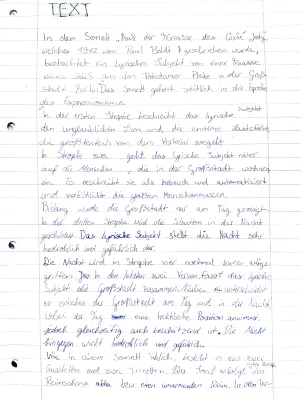 TEXT
In dem Sonett „Auf der Terrasse des Café Josty"
welches 1912 von Paul Boldt geschrieben wurde,
beobachtet ein Lyrisches Subjekt von einer Terrasse
eines Cafés aus den Potsdamer Platz in der Groß-
stadt Berlin. Das Sonett gehört zeitlich in die Epoche
des Expressionismus.
In der ersten Strophe beschreibt das lyrische Subjekt
den unglaublichen Lärm und die enorme
die größtenteils von dem Verkehr ausgeht.
In Strophe zwei geht das lyrische Subjekt näher
auf die Menschen, die in der Großstadt wohnen
ein. Es beschreibt sie als hektisch und automatisiert
und verbildlicht die großen Menschenmassen.
Bislang wurde die Großstadt nur am Tag gezeigt
In der dritten Strophe wird die Situation in der Nacht
geschildert. Das lyrische Subjekt stellt die Nacht sehr
bedrohlich und gefährlich dar.
Die Nacht wird in Strophe vier nochmal kurz aufge-
griffen. In den letzten zwei Versen fasst das lyrische
Subjekt die Großstadt zusammen. unterscheidet
es zwischen der Großstadt am Tag und in der Nacht
wobei der Tag eine hektische Position einnimmt,
jedoch gleichzeitig auch beschützend ist. Die Nacht
hingegen wirkt bedrohlich und gefährlich.
Wie in einem Sonett üblich, besteht es aus zwei
Quartetten und zwei Terzetten. Dies folgt das
Reimschema abba bzw. einen umarmenden Reim. In den Ter-